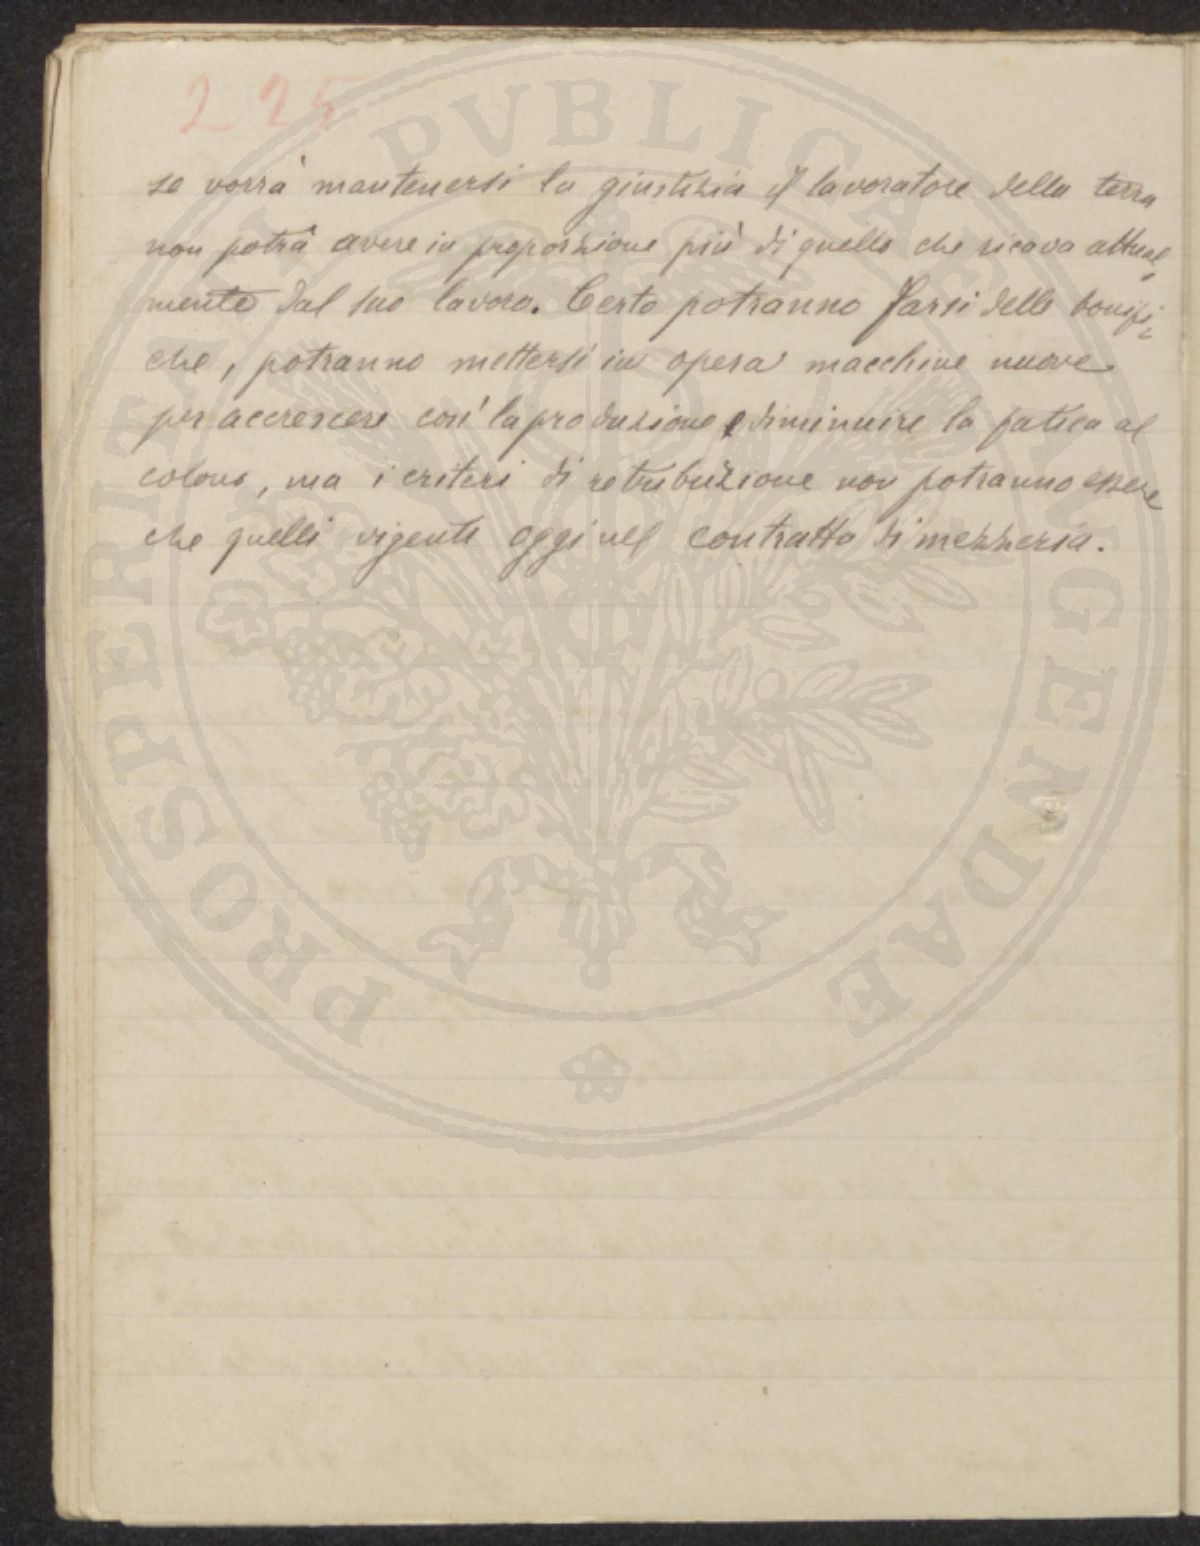 225
se vorrà mantenersi la giustizia il lavoratore della terra
non potrà avere in proporzione più di quello che ricava attual=
mente dal suo lavoro. Certo potranno farsi delle bonifi=
che, potranno mettersi in opera macchine nuove
per accrescere così la produzione e diminuire la fatica al
colono, ma i criteri di retribuzione non potranno essere
che quelli vigenti oggi nel contratto di mezzeria.
PROSPERITATI PVBLICAE AVGENDAE